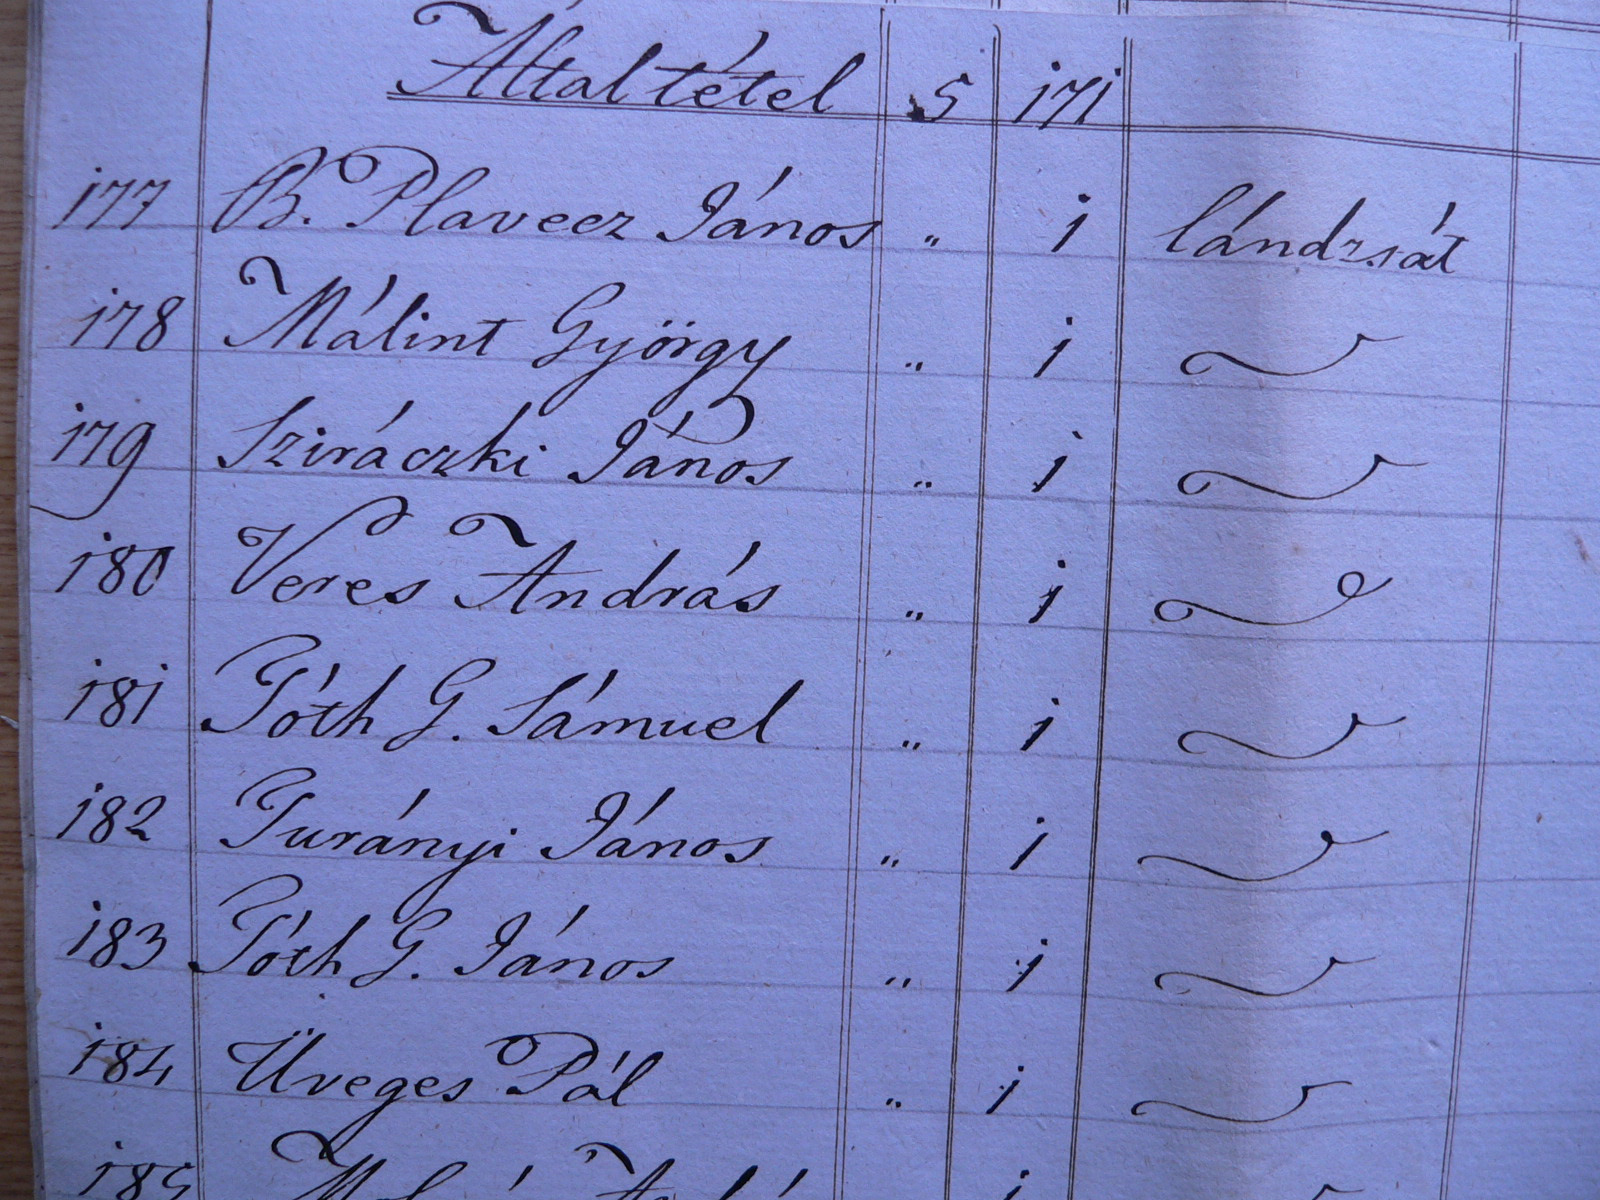 Általtétel 5 171
177 B. Plavecz János " 1 lándzsát
178 Málint György " 1
179 Sziráczki János " 1
180 Veres András " 1
181 Tóth G. Sámuel " 1
182 Turányi János " 1
183 Tóth G. János " 1
184 Üveges Pál " 1
185